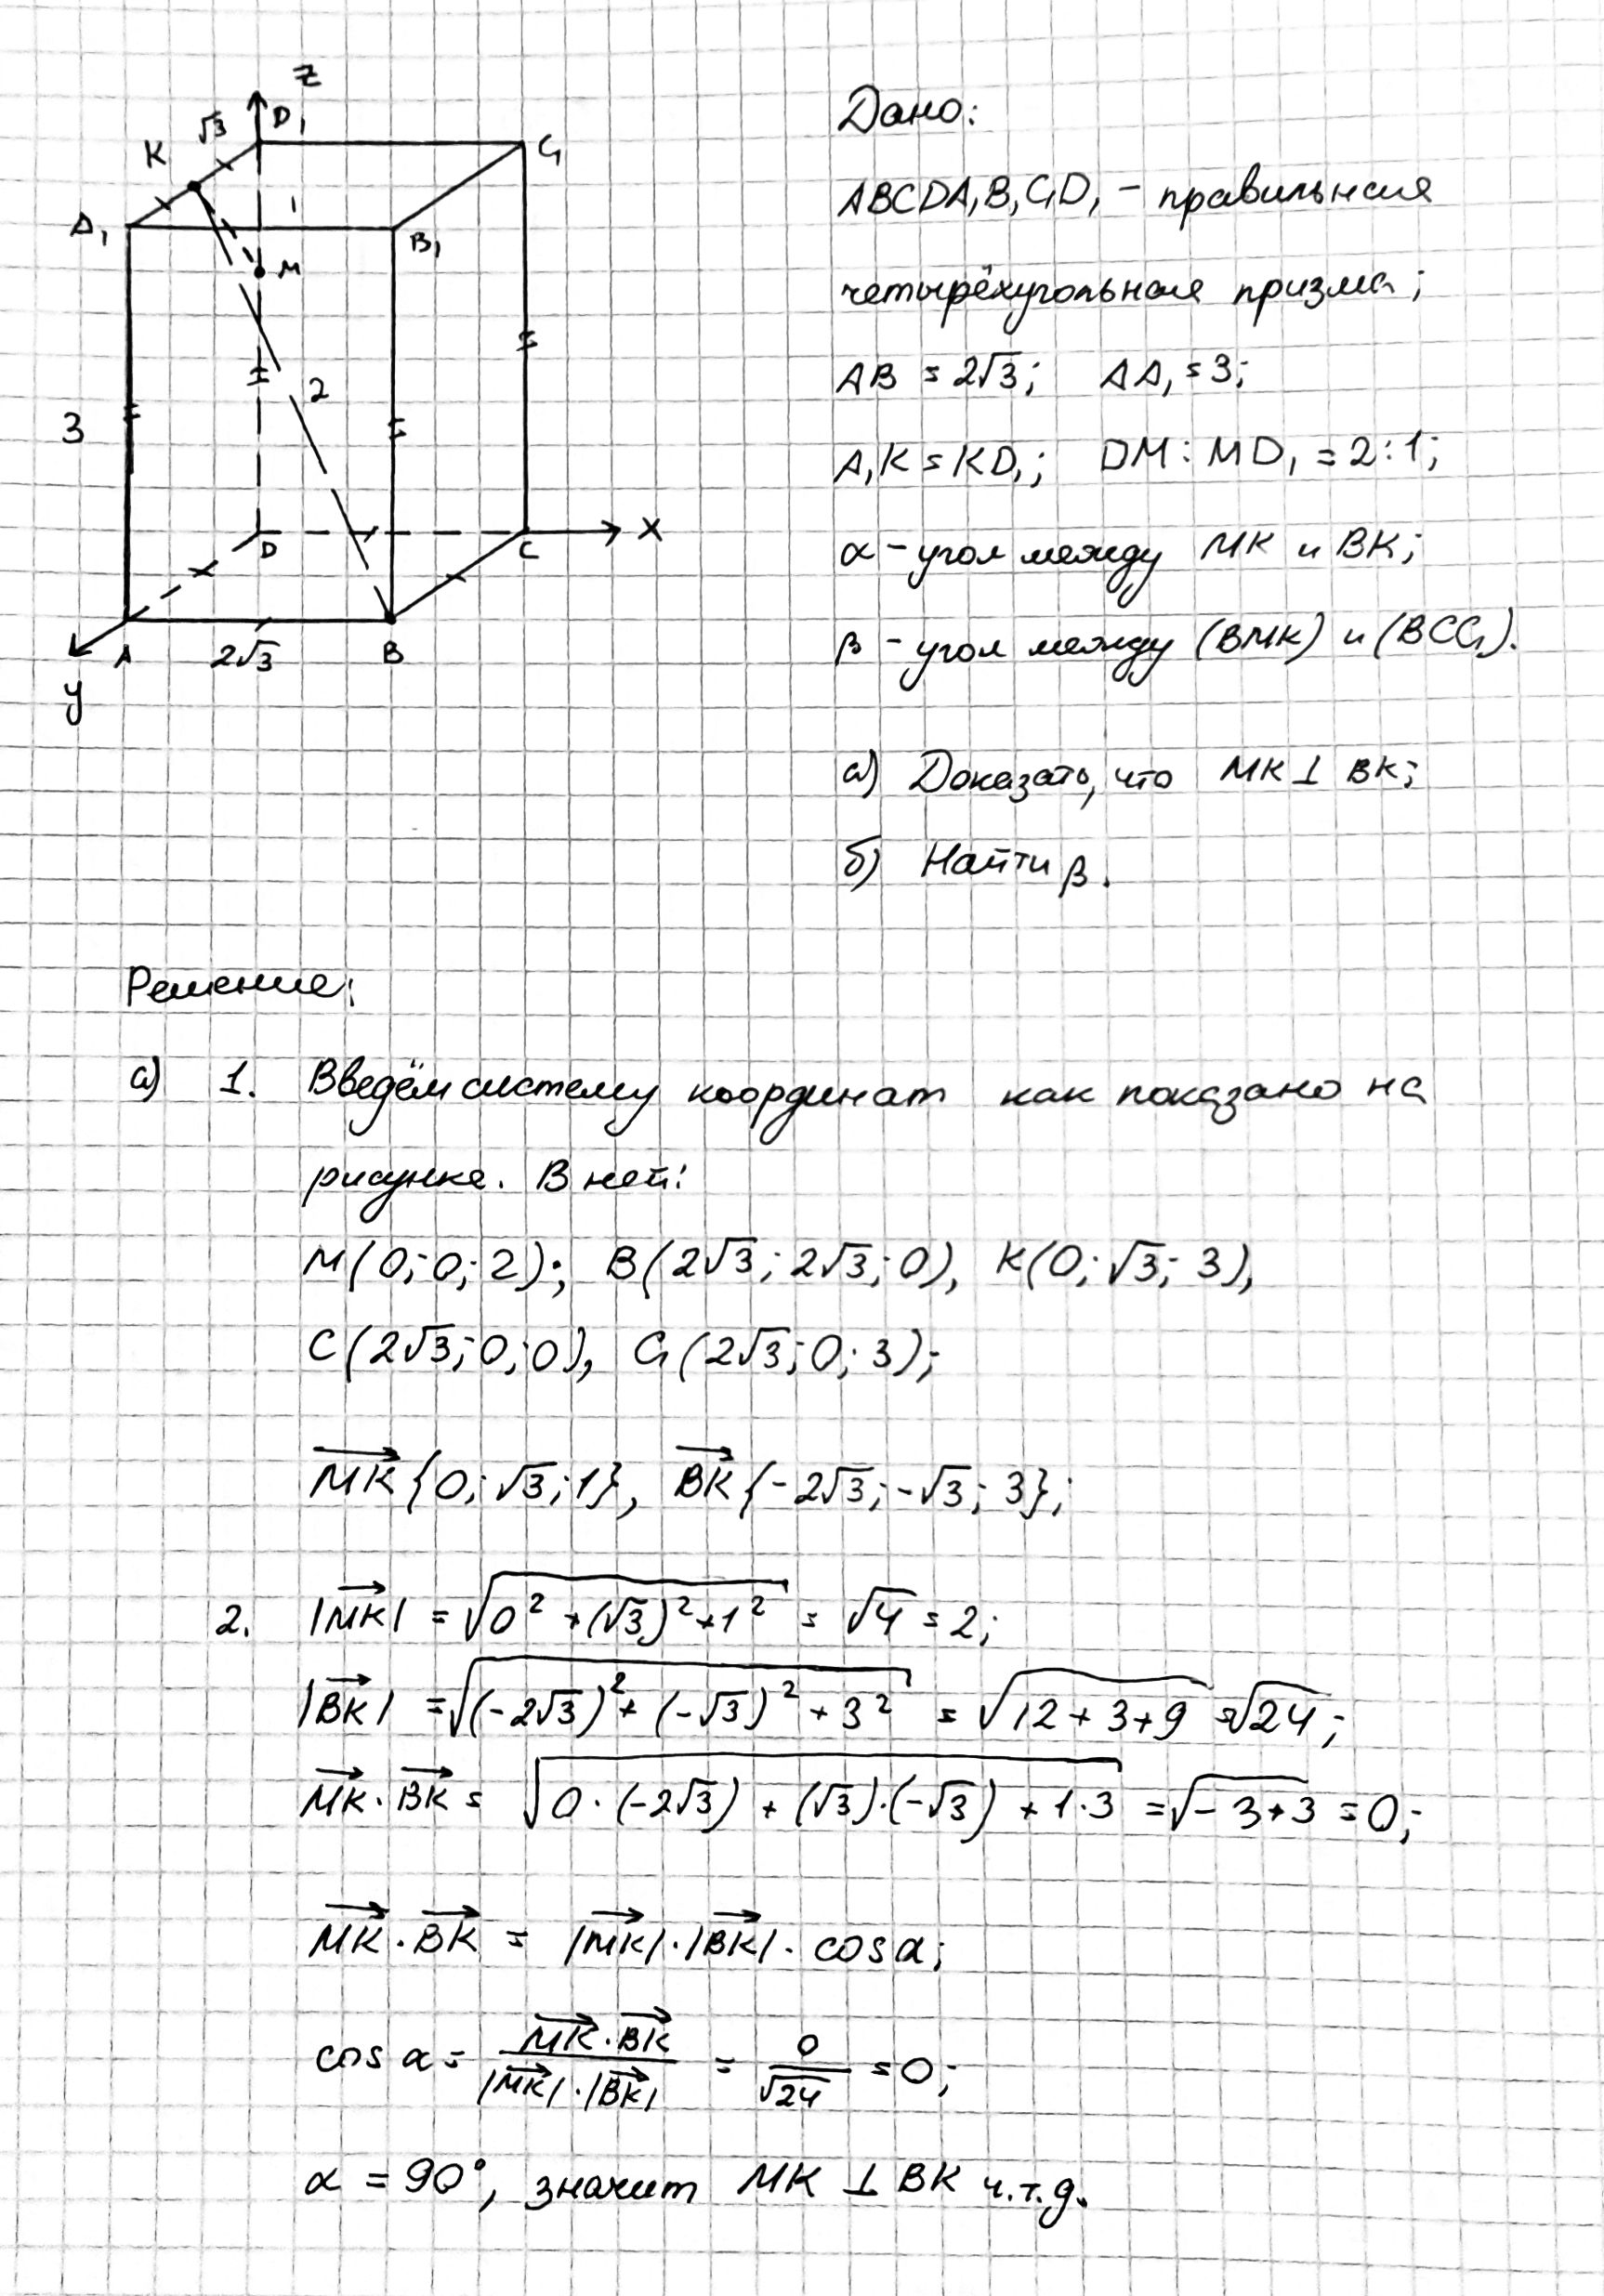 z
D₁
√3
K
C₁
1
A₁
B₁
M
2
3
D
C
x
A
2√3
B
y
Дано:
ABCDA₁B₁C₁D₁ - правильная
четырёхугольная призма;
AB = 2√3; AA₁ = 3;
A₁K = KD₁; DM : MD₁ = 2:1;
α - угол между MK и BK;
β - угол между (BMK) и (BCC₁).
а) Доказать, что MK ⊥ BK;
б) Найти β.
Решение:
а) 1. Введём систему координат как показано на
рисунке. В ней:
M(0; 0; 2); B(2√3; 2√3; 0), K(0; √3; 3),
C(2√3; 0; 0), C₁(2√3; 0; 3);
MK⃗ {0; √3; 1}, BK⃗ {-2√3; -√3; 3};
2. |MK⃗| = √(0² + (√3)² + 1²) = √4 = 2;
|BK⃗| = √((-2√3)² + (-√3)² + 3²) = √(12 + 3 + 9) = √24;
MK⃗ · BK⃗ = √(0 · (-2√3) + (√3) · (-√3) + 1 · 3) = √(-3 + 3) = 0;
MK⃗ · BK⃗ = |MK⃗| · |BK⃗| · cos α;
cos α = (MK⃗ · BK⃗)/(|MK⃗| · |BK⃗|) = 0/√24 = 0;
α = 90°, значит MK ⊥ BK ч.т.д.